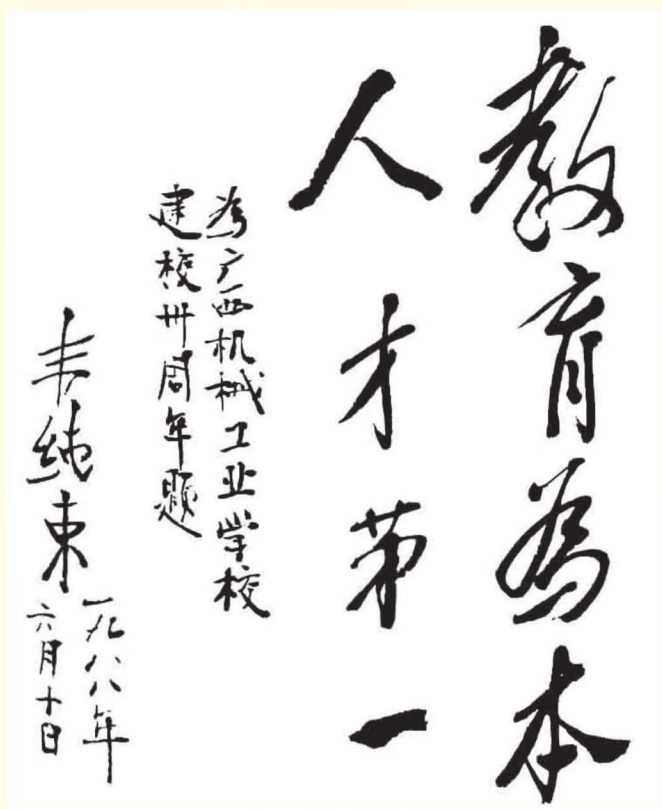 教育為本
人才第一
為广西机械工业学校
建校卅周年题
韦纯束
一九八八年
六月十日